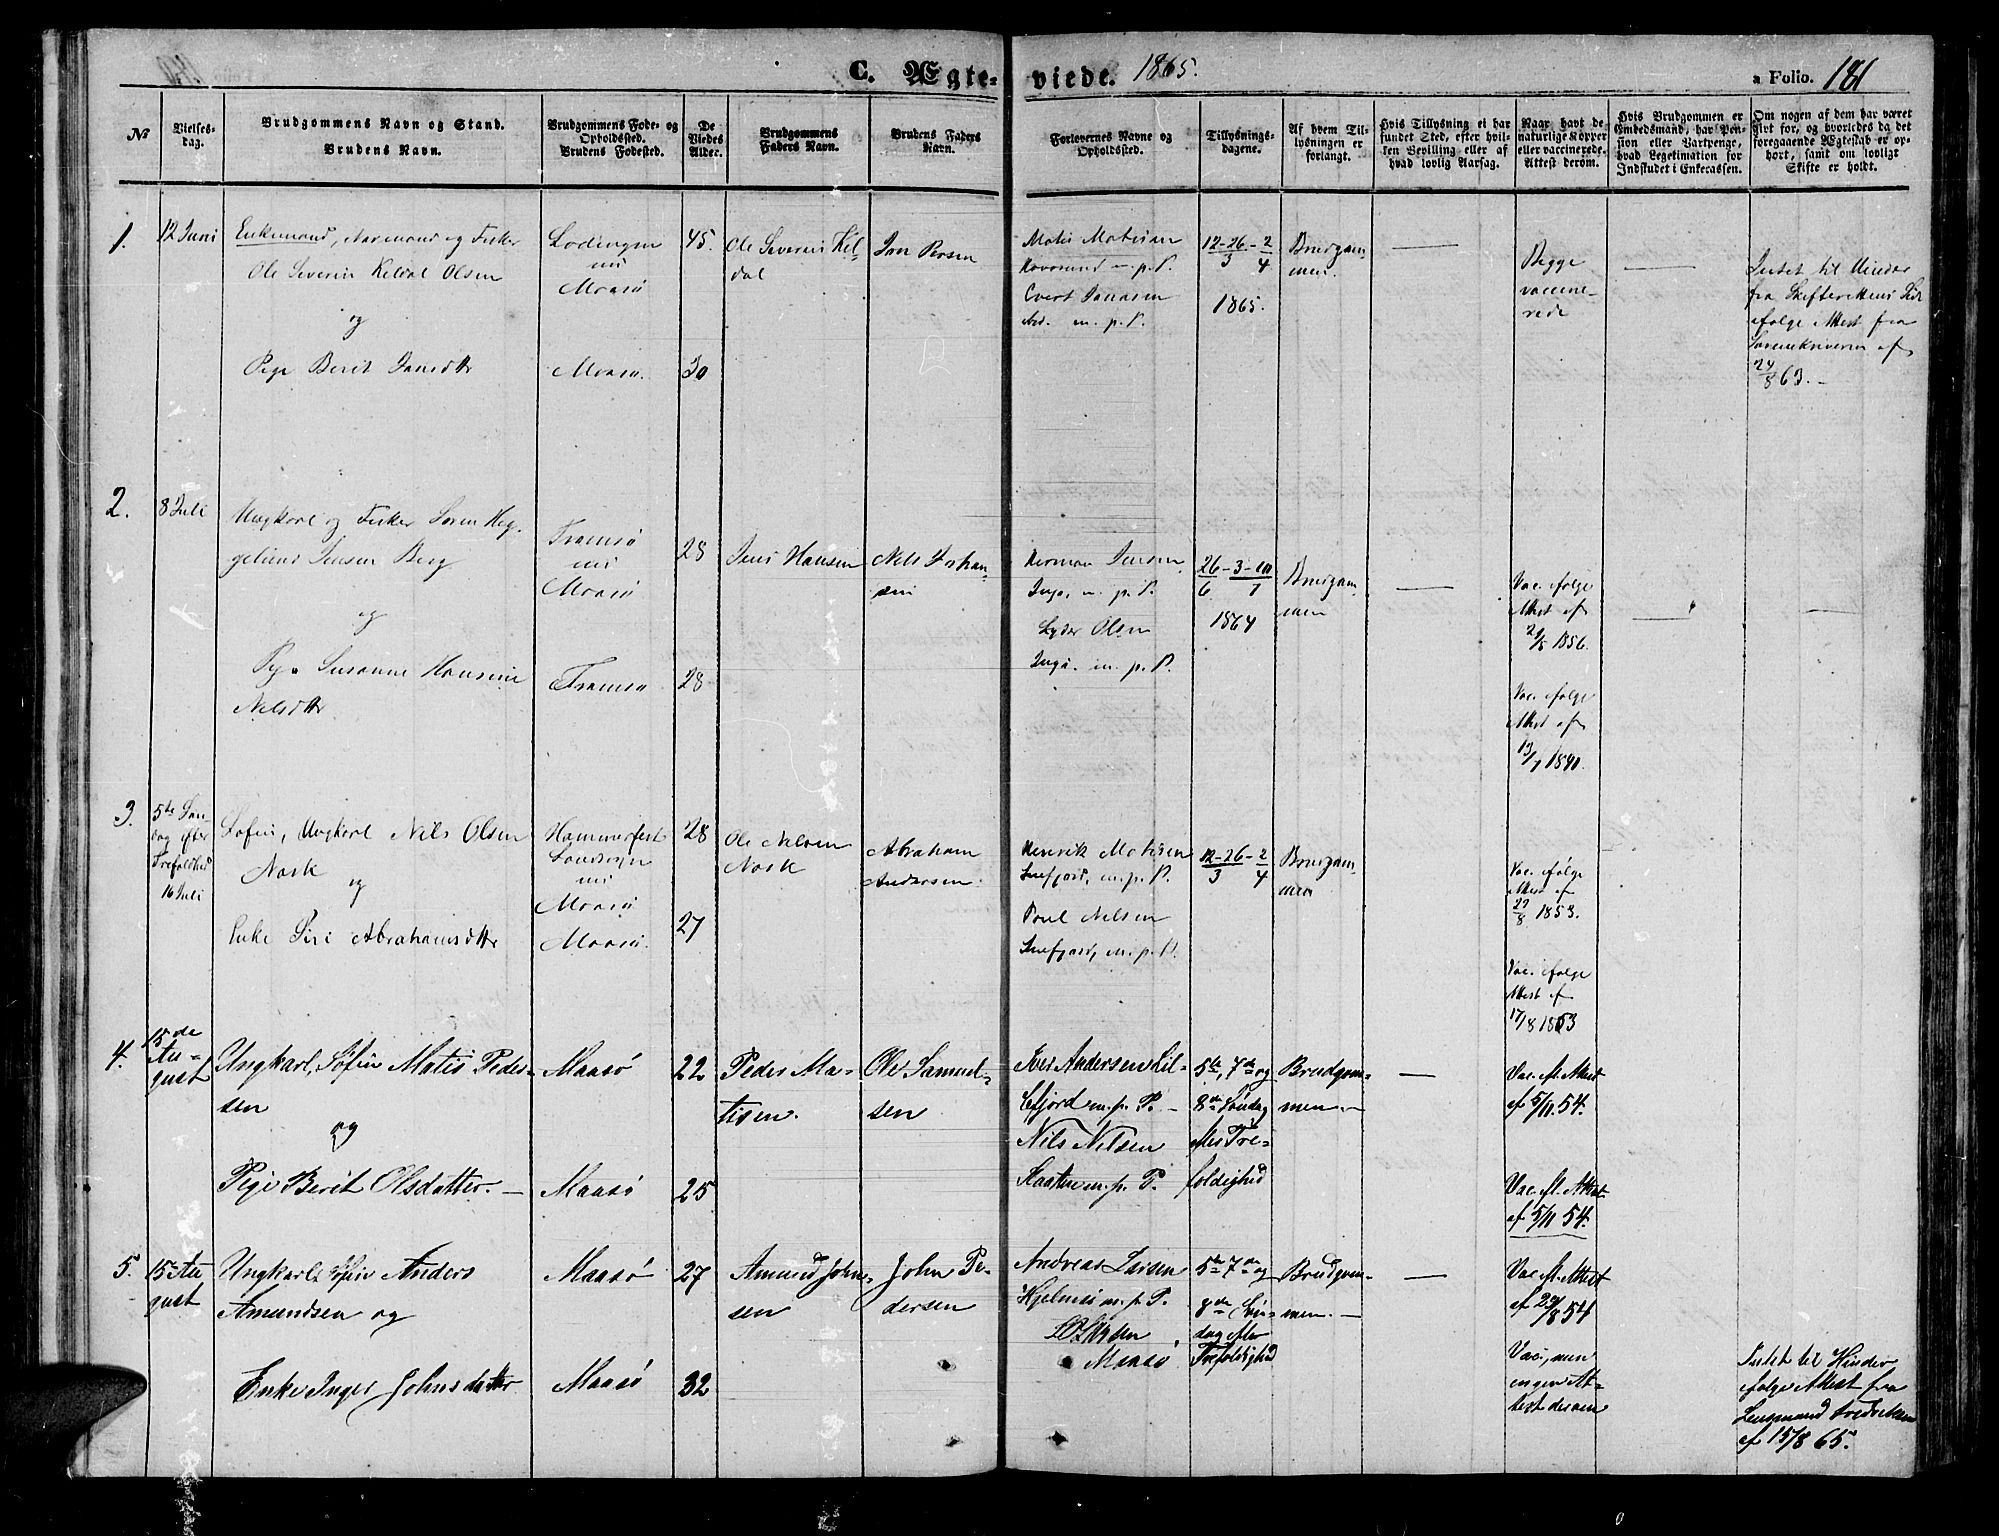 C. Ægteviede. 1865.
a Folio. 181
№
Vielsesdag.
Brudgommens Navn og Stand.
Brudens Navn.
Brudgommens Føde- og
Opholdssted.
Brudens Fødested.
De
Viedes
Alder.
Brudgommens
Faders Navn.
Brudens Faders
Navn.
Forlovernes Navne og
Opholdssted.
Tillysnings-
dagene.
Af hvem Til-
lysningen er
forlangt.
Hvis Tillysning ei har
fundet Sted, efter hvil-
ken Bevilling eller af
hvad lovlig Aarsag.
Naar havt de
naturlige Kopper
eller vaccinerede.
Attest derom.
Hvis Brudgommen er
Embedsmand, har Pen-
sion eller Vartpenge,
hvad Legitimation for
Indskudet i Enkecassen.
Om nogen af dem har været
gift for, og hvorledes da det
foregaaende Ægteskab er op-
hørt, samt om lovligt
Skifte er holdt.
1.
12 Juni
Enkemand, Normand og Fisker
Ole Severin Keldal Olsen
og
Pige Berit Jansdtr
Lødingen
nu
Maasø
Maasø.
45.
30
Ole Severin Kel-
dal
Jan Persen
Matis Matisen
Havøsund m.p.P.
Evert Jansen
m.p.P.
12-26-2
3 4
1865.
Brudgom-
men.
Begge
vaccine-
rede
Intet til Hinder
fra Skifterettens Side
ifølge Attest fra
Sorenskriveren af
24/8 63.
2.
8 Juli
Ungkarl og Fisker Søren Heg-
gelund Jensen Berg
og
Pige Susanne Hansine
Nelsdtr
Tromsø
nu
Maasø
Tromsø
28
28
Jens Hansen
Nels Johan-
sen
Herman Jensen
Ingø, m.p.P.
Lyder Olsen
Ingø. m.p.P.
26-3-10
6 7
1864
Brudgom-
men
Vac. ifølge
Attest af
1856.
Vac. ifølge
Attest af
3.
5te Søn-
dag efter
Trefoldighed
16 Juli
Søfin, Ungkarl Nils Olsen
Nask
og
Enke Siri Abrahamsdtr
Hammerfest
Landsogn
nu
Maasø
Maasø.
28
27
Ole Nilsen
Nask
Abraham
Andersen
Henrik Matisen
Snefjord, m.p.P.
Poul Nilsen
Snefjord, m.p.P.
12-26-2
3 4
Brudgom-
men
Vac. ifølge
Attest af
27/8 1853.
Vac. ifølge
Attest af
17/8 1853
4.
15de
Au-
gust
Ungkarl, Søfin Matis Peder-
sen
og
Pige Berit Olsdatter.
Maasø
Maasø
22
25
Peder Ma-
tisen.
Ole Samuel-
sen
Iver Andersen Lil-
lefjord m.p.P.
Nils Nilsen
m.p.P.
5te, 7de og
8de Søndag
efter Tre-
foldighed
Brudgom-
men.
Vac. ifl. Attest
af 5/11 54.
Vac. ifl. Attest
af 5/11 54.
5.
15 Au-
gust
Ungkarl Søfin Anders
Amundsen og
Enke Inger Johnsdatter
Maasø
Maasø
27
32
Amund John-
sen
John Pe-
dersen
Andreas Larsen
Hjelmsø m.p.P.
Maasø
5te 7de og
8de Søn-
dag efter
Trefoldighed
Brudgom-
men.
Vac. ifl. Attest
af 29/8 54
Vac., men
ingen At-
test derom
Intet til Hinder
ifølge Attest fra
Lensmand Fredriksen
af 15/8 65.